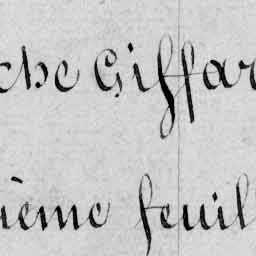 che Giffar
ième feuil